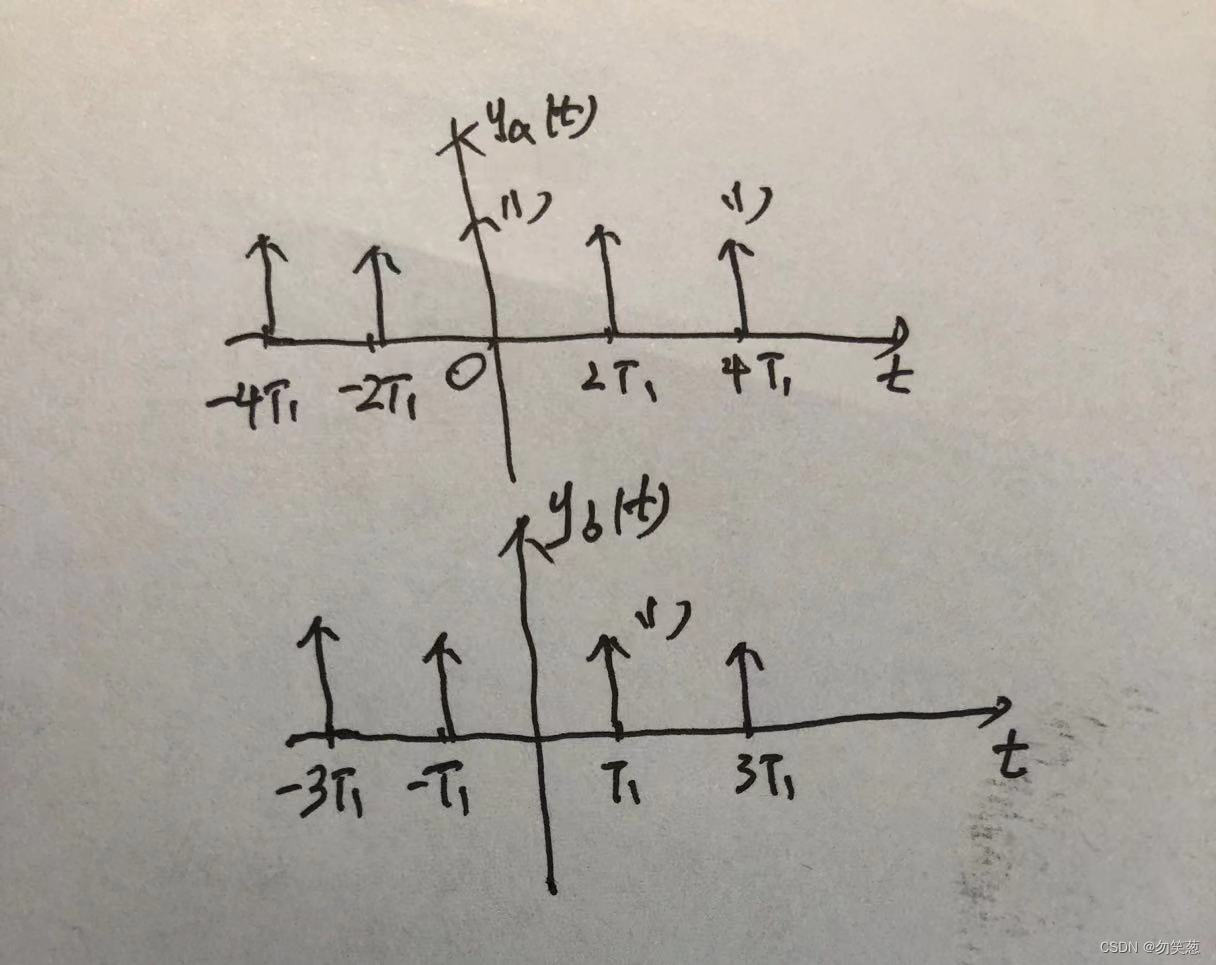 yₐ(t)
(1) (1)
-4T₁ -2T₁ 0 2T₁ 4T₁ t
y_b(t)
(1)
-3T₁ -T₁ T₁ 3T₁ t
CSDN @勿笑葱